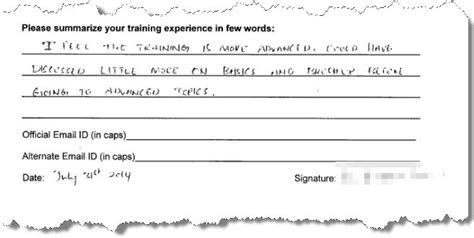 Please summarize your training experience in few words:
I FEEL THE TRAINING IS MORE ADVANCED. COULD HAVE
DISCUSSED LITTLE MORE ON BASICS AND TOUCHUP BEFORE
GOING TO ADVANCED TOPICS.
Official Email ID (in caps)
Alternate Email ID (in caps)
Date: July 21st 2014
Signature: